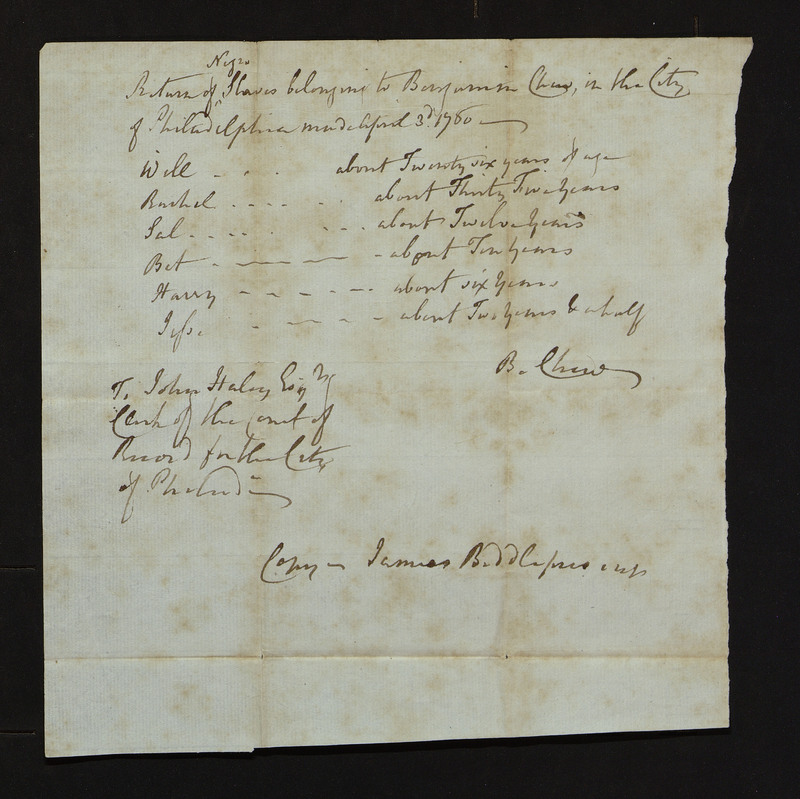 Negro
Return of Slaves belonging to Benjamin Chew, in the City
of Philadelphia made April 3d. 1780
Will - - - about Twenty six years of age
Rachel - - - - - - about Thirty Two Years
Sal - - - - - - - about Twelve Years
Bet - - - - - about Ten Years
Harry - - - - - - about six Years
Jesse - - - - - about Two Years & a half
B. Chew
To John Haley Esqr
Clerk of the Court of
Record for the City
of Philad
Copy James Biddle